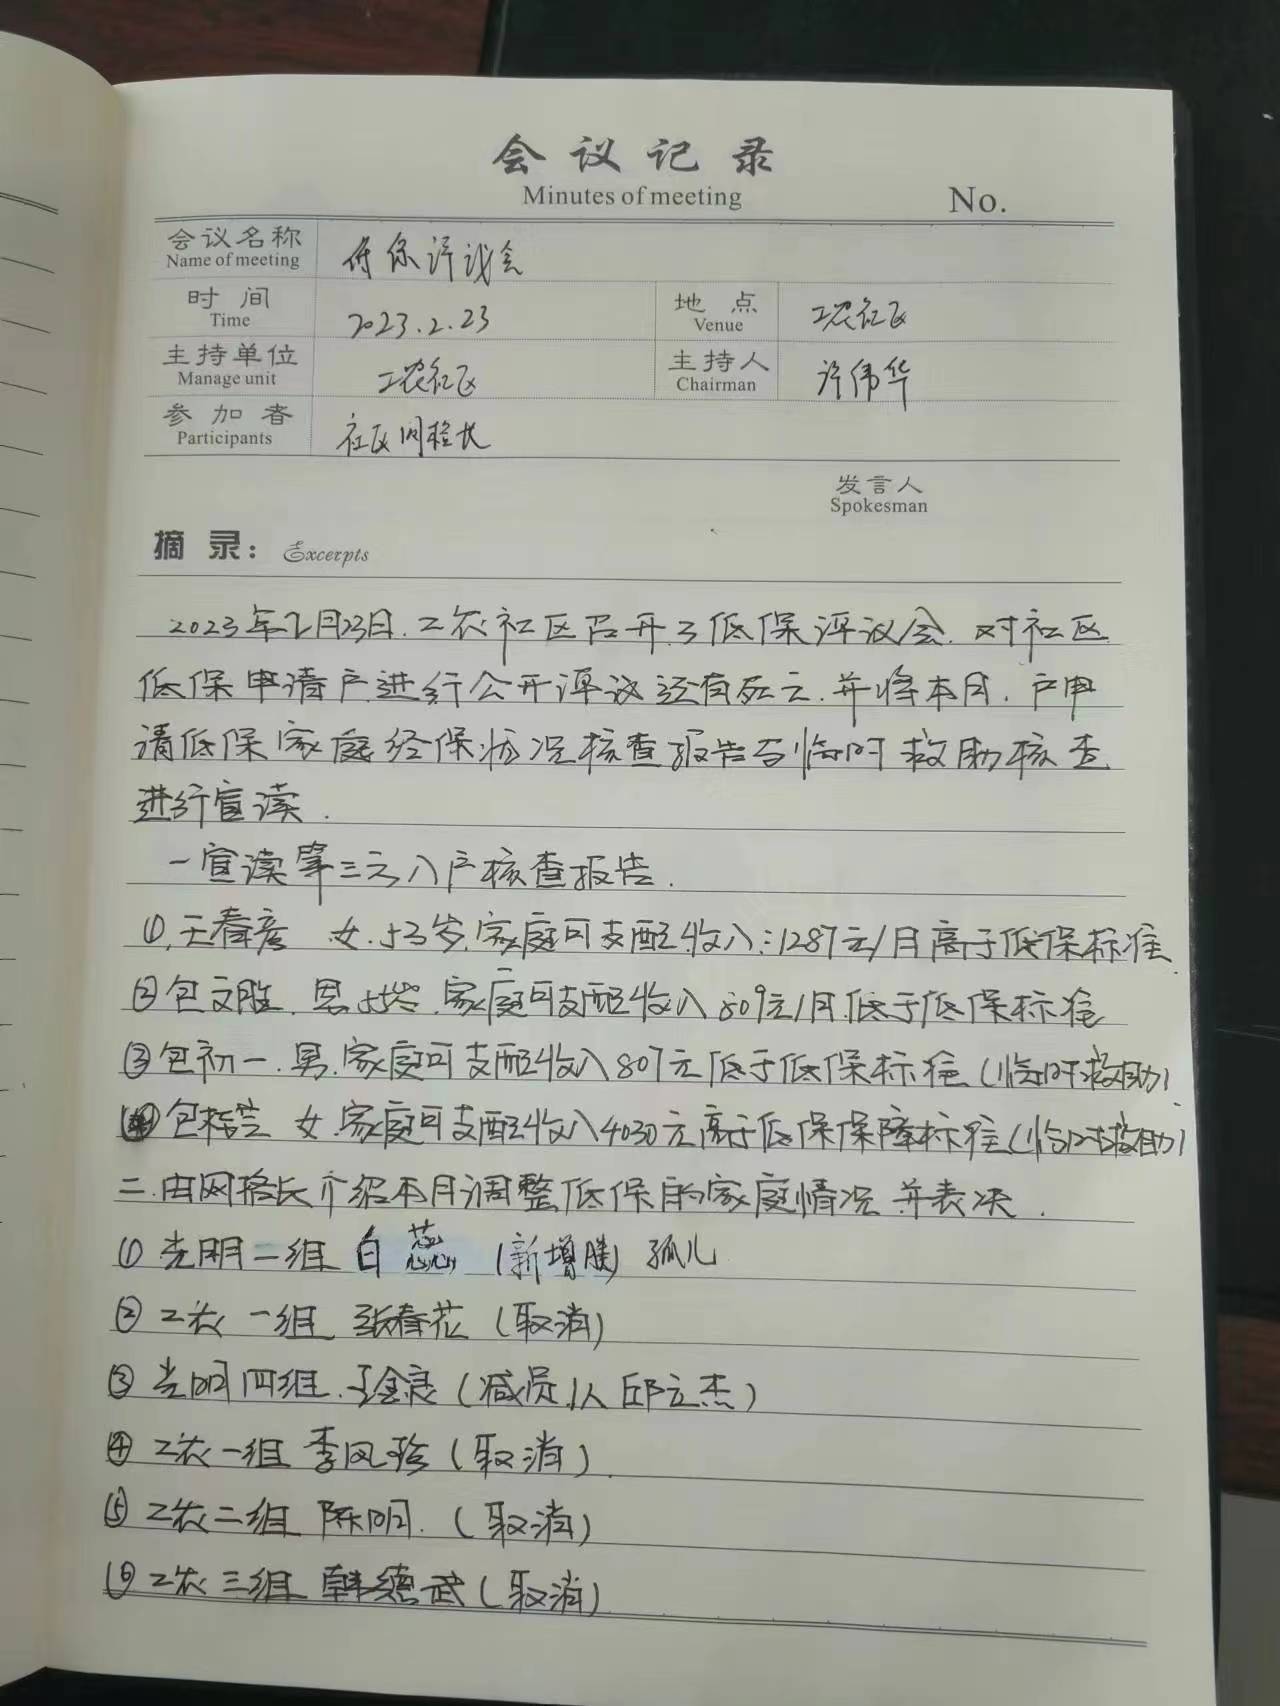 会议记录
Minutes of meeting
No.
会议名称 低保评议会
Name of meeting
时间 2023.2.23 地点 工农社区
Time Venue
主持单位 工农社区 主持人 许伟华
Manage unit Chairman
参加者 社区网格长
Participants
发言人
Spokesman
摘录： Excerpts
2023年2月23日.工农社区召开了低保评议会.对社区
低保申请户进行公开评议 并将本月.户申
请低保家庭经保状况核查报告与临时救助核查
进行宣读.
一宣读第三方入户核查报告.
①.王春彦 女.53岁.家庭可支配收入:1287元/月高于低保标准.
②包文胜.男 家庭可支配收入809元/月.低于低保标准
③包初一.男.家庭可支配收入807元低于低保标准(临时救助)
④包 女.家庭可支配收入4030元高于低保保障标准(临时救助)
二.由网格长介绍本月调整低保的家庭情况并表决.
①光明二组 白蕊 (新增) 孤儿
②工农一组 张春花(取消)
③光明四组.(减员1人邱立杰)
④工农一组 李凤珍(取消).
⑤工农二组 陈明.(取消)
⑥工农三组 韩德武(取消)